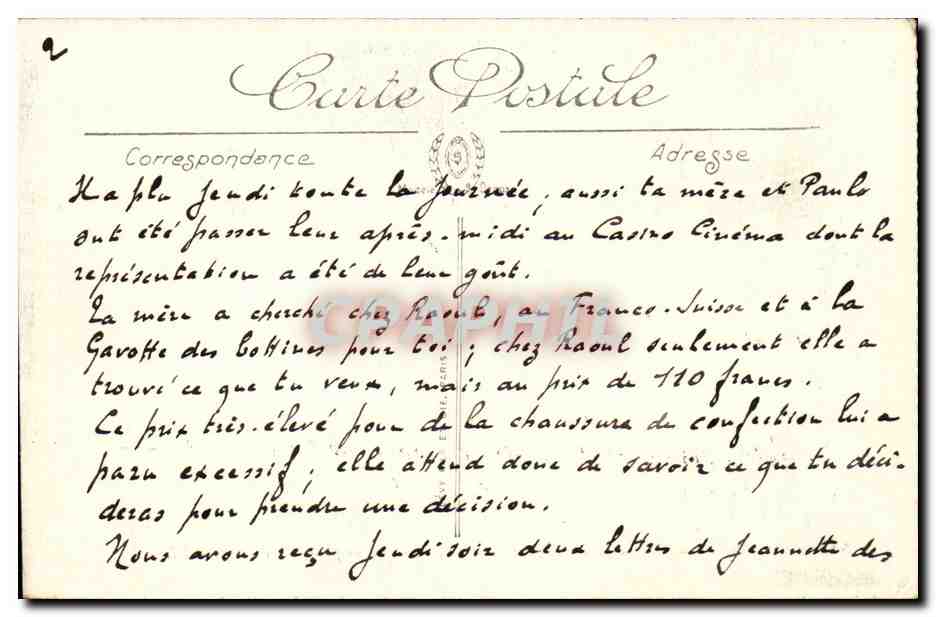 2
Carte Postale
Correspondance
Adresse
Il a plu Jeudi toute la Journée, aussi ta mère et Paulo
ont été passer leur après-midi au Casino Cinéma dont la
représentation a été de leur goût.
Ta mère a cherché chez Raoul, au Franco-Suisse et à la
Gavotte des bottines pour toi; chez Raoul seulement elle a
trouvé ce que tu veux, mais au prix de 110 francs.
Ce prix très-élevé pour de la chaussure de confection lui a
paru excessif; elle attend donc de savoir ce que tu déci-
deras pour prendre une décision.
Nous avons reçu Jeudi soir deux lettres de Jeannette des
CPAPHIL
PARIS